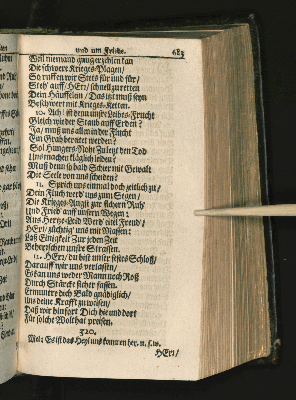 und um Friede. 683
Weil niemand gnug erzehlen kan
Die schwere Krieges-Plagen/
So ruffen wir Stets für und für/
Steh' auff / HErr/ schnell zu retten
Dein Häuffelein/ Das ist muß seyn
Beschwert mit Krieges-Ketten.
10. Ach! ist denn unser Leibes-Frucht
Gleich wie der Staub auff Erden?
Ja/ muß uns allen in der Flucht
Ein Grab bereitet werden?
Sol Hungers-Noht Zuletzt den Tod
Uns machen kläglich leiden?
Muß denn so bald Schier mit Gewalt
Die Seele von uns scheiden?
11. Sprich uns einmal doch zeitlich zu/
Dein Fluch werd' uns zum Segen/
Die Krieges-Angst zur sichern Ruh/
Und Fried' auff unsern Wegen:
Aus Hertze-Leid Werd' eitel Freud'/
HErr/ züchtig' uns mit Massen:
Laß Einigkeit Zur jeden Zeit
Beherschen unsre Strassen.
12. HErr/ du bist unser festes Schloß/
Darauff wir uns verlassen/
Es kan uns weder Mann noch Roß
Durch Stärcke sicher fassen.
Ermuntre dich Bald gnädiglich/
uns deine Krafft zu weisen/
Daß wir hinfort Dich hie und dort
Für solche Wolthat preisen.
320.
Mel: Es ist das Heyl uns kommen her. u. s. w.
HErr/